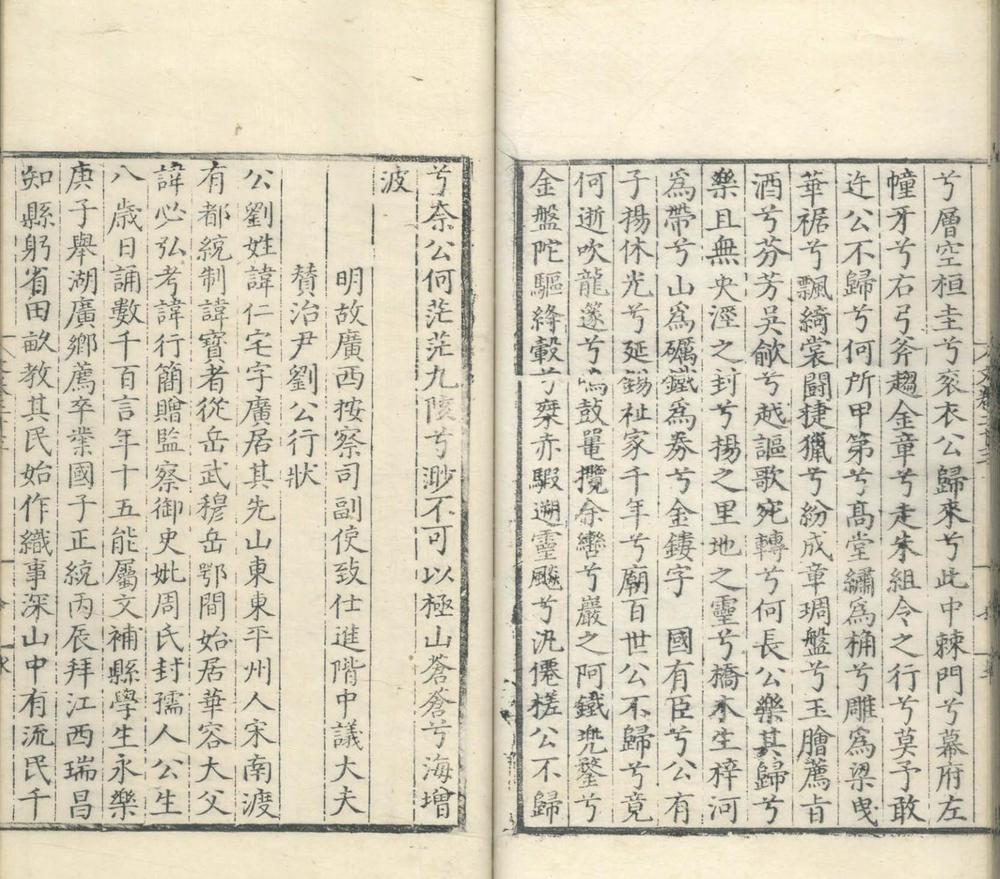 兮層空桓圭兮袞衣公歸來兮此中棘門兮幕府左
幢牙兮右弓斧趨金章兮走朱組令之行兮莫予敢
迕公不歸兮何所甲第兮高堂繡為桷兮雕為梁曳
華裾兮飄綺裳鬭捷獵兮紛成章琱盤兮玉膾薦旨
酒兮芬芳吳歈兮越謳歌宛轉兮何長公樂其歸兮
樂且無央涇之封兮揚之里地之靈兮橋木生梓河
為帶兮山為礪鐵為券兮金鏤字 國有臣兮公有
子揚休光兮延錫祉家千年兮廟百世公不歸兮竟
何逝吹龍邃兮鳴鼓鼉攬余轡兮巖之阿鐵兠鍪兮
金盤陀驅絳轂兮槊赤騢遡靈飈兮汎僊槎公不歸
兮奈公何茫茫九陵兮渺不可以極山蒼蒼兮海增
波
明故廣西按察司副使致仕進階中議大夫
賛治尹劉公行狀
公劉姓諱仁宅字廣居其先山東東平州人宋南渡
有都統制諱寶者從岳武穆岳鄂間始居華容大父
諱必弘考諱行簡贈監察御史妣周氏封孺人公生
八歲日誦數千百言年十五能屬文補縣學生永樂
庚子舉湖廣鄉薦卒業國子正統丙辰拜江西瑞昌
知縣躬省田畝教其民始作織事深山中有流民千